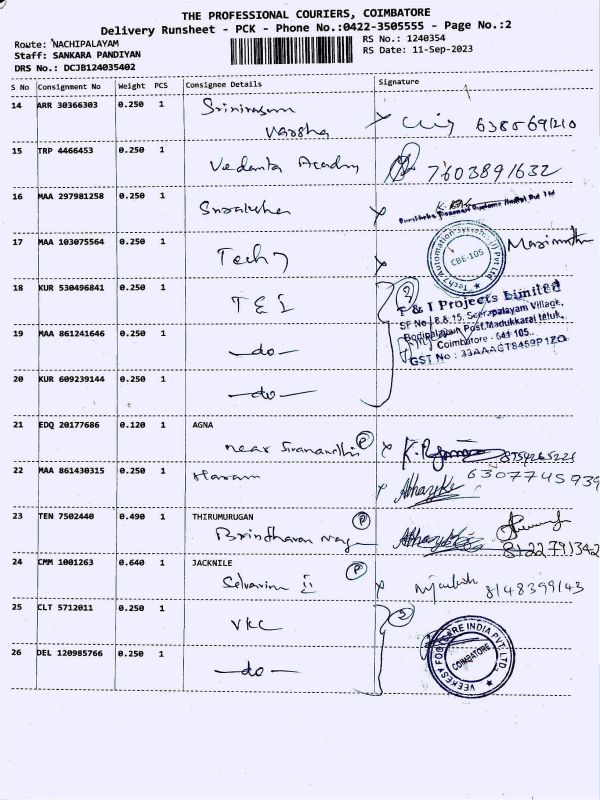 THE PROFESSIONAL COURIERS, COIMBATORE
Delivery Runsheet - PCK - Phone No.:0422-3505555 - Page No.:2
Route: NACHIPALAYAM
RS No.: 1240354
Staff: SANKARA PANDIYAN
RS Date: 11-Sep-2023
DRS No.: DCJB124035402
S No Consignment No Weight PCS Consignee Details Signature
14 ARR 30366303 0.250 1 Srinivasan
Varsha
15 TRP 4466453 0.250 1 Vedanta Academy 7603891632
16 MAA 297981258 0.250 1
17 MAA 103075564 0.250 1 Tech 7
Tech7 Automation Systems (I) Pvt Ltd
CBE-105
18 KUR 530496841 0.250 1 TEI 2
T & I Projects Limited
SF No: 8 & 15, Seerapalayam Village,
Bodipalayam Post, Madukkarai taluk,
Coimbatore - 641 105.
GST No : 33AAAGT8459P1ZQ
19 MAA 861241646 0.250 1 -do-
20 KUR 609239144 0.250 1 -do-
21 EDQ 20177686 0.120 1 AGNA
near P 8754265221
22 MAA 861430315 0.250 1 6307745939
23 TEN 7502440 0.490 1 THIRUMURUGAN
P 8122791342
24 CMM 1001263 0.640 1 JACKNILE
P 8148399143
25 CLT 5712011 0.250 1 VKC 2
26 DEL 120985766 0.250 1 -do-
VEEKESY FOOTCARE INDIA PVT. LTD.
COIMBATORE